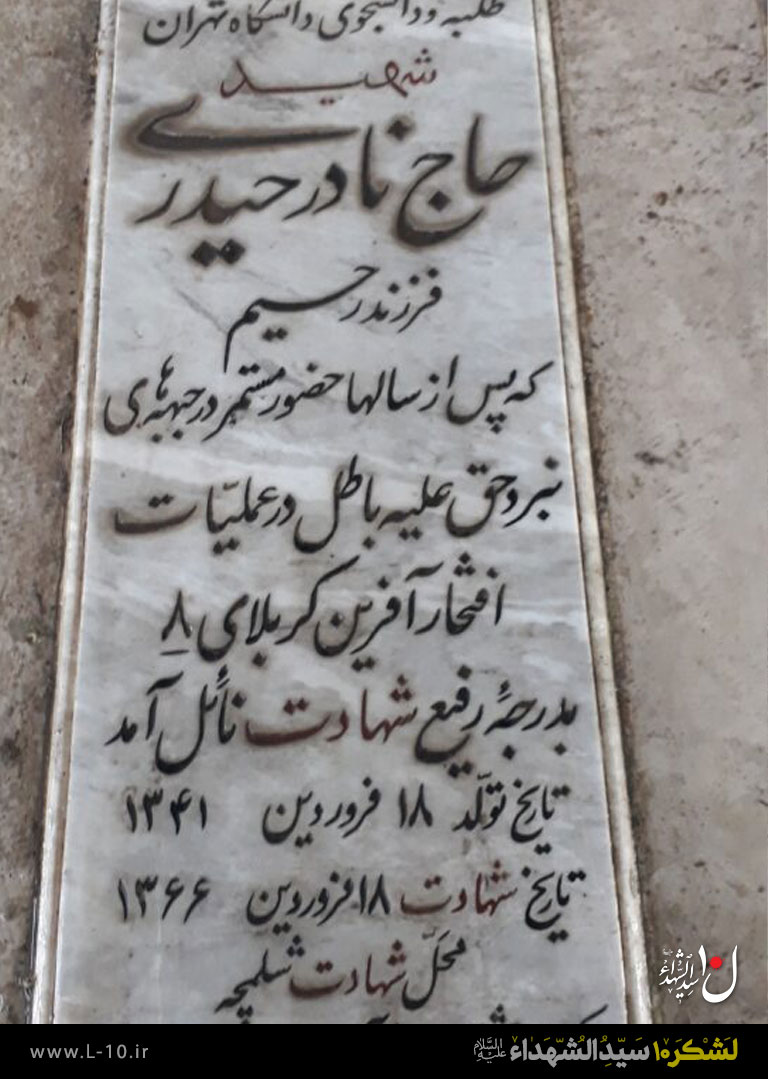 طلبه و دانشجوی دانشگاه تهران
شهید
حاج نادر حیدری
فرزند رحیم
که پس از سالها حضور مستمر در جبهه های
نبرد حق علیه باطل در عملیّات
افتخار آفرین کربلای ۸
بدرجهٔ رفیع شهادت نائل آمد
تاریخ تولّد ۱۸ فروردین ۱۳۴۱
تاریخ شهادت ۱۸ فروردین ۱۳۶۶
محلّ شهادت شلمچه
ل۱۰ سیدالشهداء
لَشکَر۱۰ سَیّدُالشُهَداء علیه السلام
www.L-10.ir